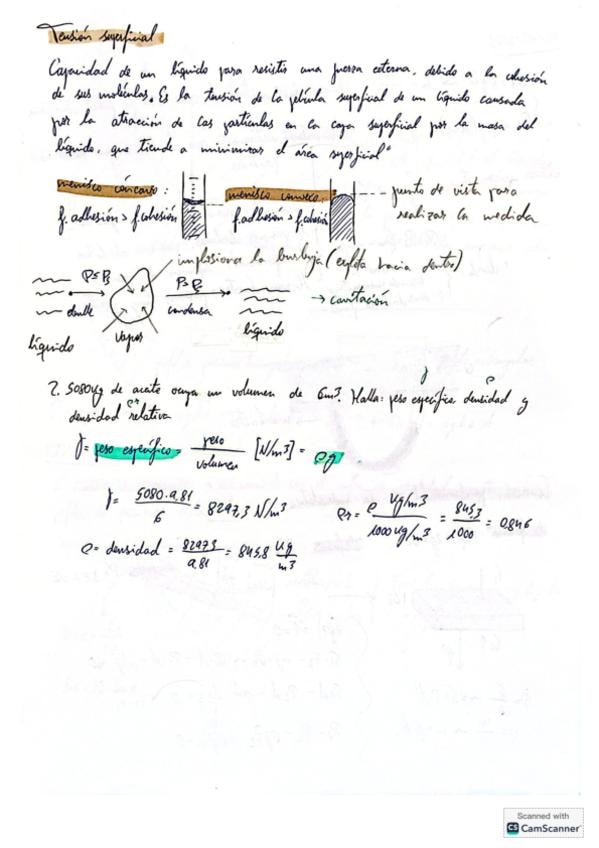 Tensión superficial
Capacidad de un líquido para resistir una fuerza externa, debido a la cohesión
de sus moléculas. Es la tensión de la película superficial de un líquido causada
por la atracción de las partículas en la capa superficial por la masa del
líquido, que tiende a minimizar el área superficial"
menisco cóncavo:
f. adhesión > f. cohesión
menisco convexo:
f. adhesión > f. cohesión
punto de vista para
realizar la medida
implosiona la burbuja (explota hacia dentro)
P≤Ps
ebulle
líquido
vapor
P>Ps
condensa
líquido
→ cavitación
γ ρ
2. 5080kg de aceite ocupa un volumen de 6m³. Halla: peso específico, densidad y
ρr
densidad relativa
γ = peso específico = peso/volumen [N/m³] = ρg
γ = 5080·9,81/6 = 8297,3 N/m³
ρr = ρ kg/m³ / 1000 kg/m³ = 845,3/1000 = 0,846
ρ = densidad = 8297,3/9,81 = 845,8 kg/m³
Scanned with
CS CamScanner